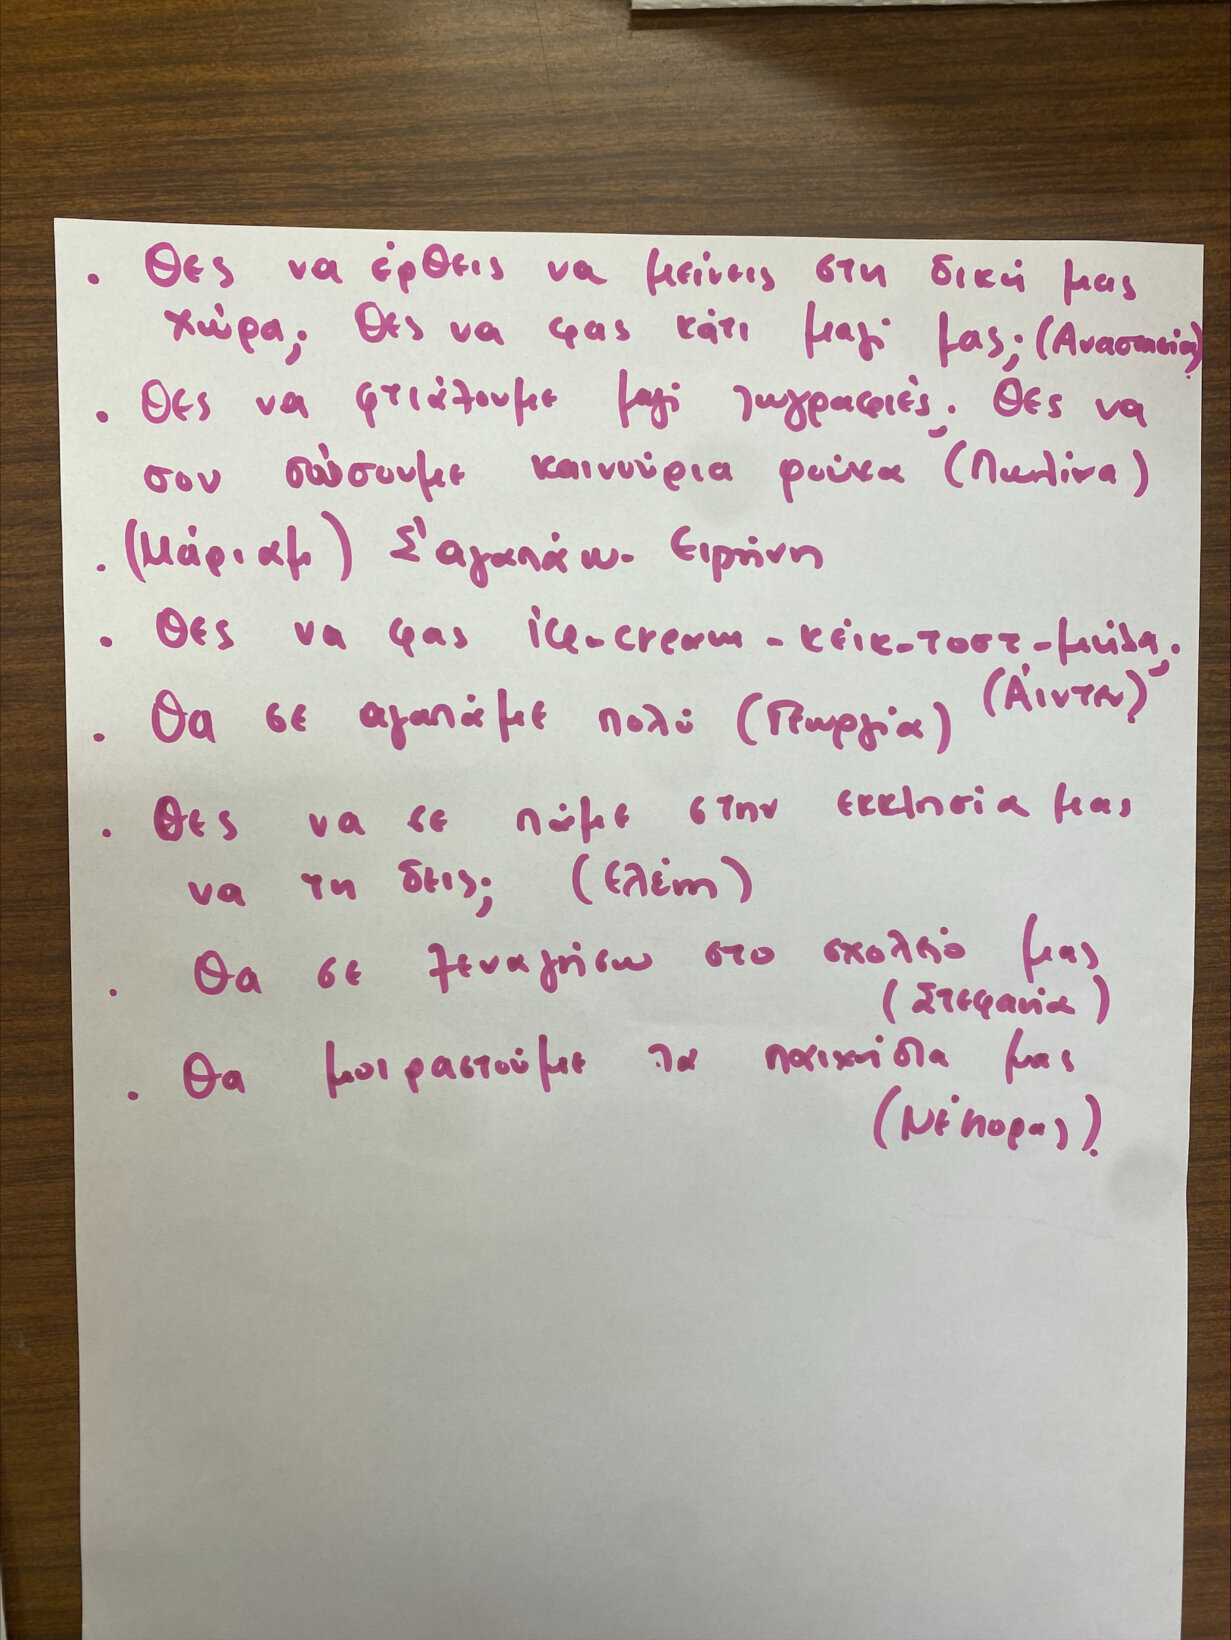 . Θες να έρθεις να μείνεις στη δική μας
χώρα; Θες να φας κάτι μαζί μας; (Αναστασία)
. Θες να φτιάξουμε μαζί ζωγραφιές; Θες να
σου δώσουμε καινούρια ρούχα (Παυλίνα)
. (Μάριαμ) Σ'αγαπάω. Ειρήνη
. Θες να φας ice-cream - κέικ-τοστ-μήλα;
(Άιντεν)
. Θα σε αγαπάμε πολύ (Γεωργία)
. Θες να σε πάμε στην εκκλησία μας
να τη δεις; (Ελένη)
. Θα σε ξεναγήσω στο σχολείο μας
(Στεφανία)
. Θα μοιραστούμε τα παιχνίδια μας